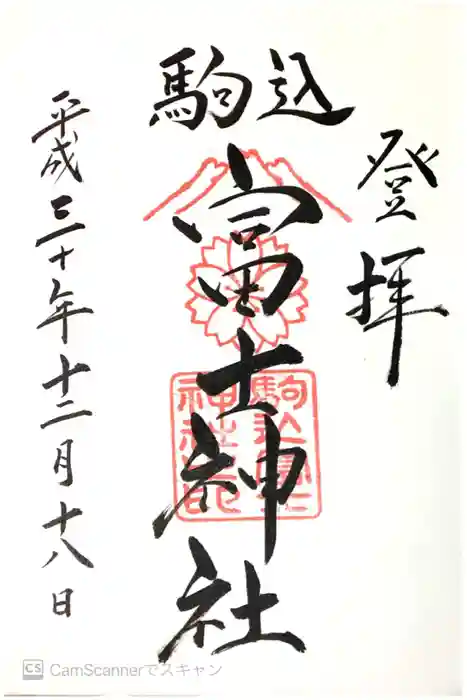 登拝
駒込
富士神社
駒込富士
神社印
平成三十年十二月十八日
CS CamScannerでスキャン